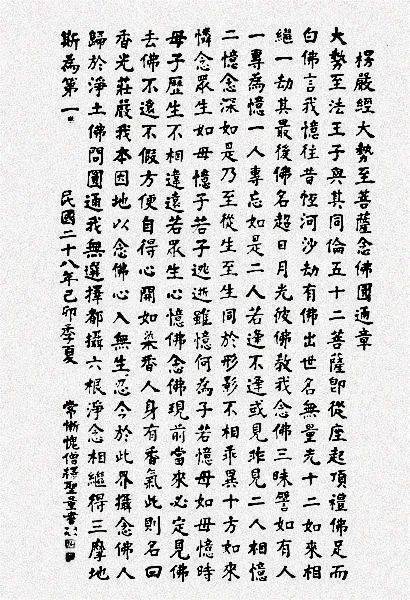 楞嚴經大勢至菩薩念佛圓通章
大勢至法王子與其同倫五十二菩薩即從座起頂禮佛足而
白佛言我憶往昔恒河沙劫有佛出世名無量光十二如來相
繼一劫其最後佛名超日月光彼佛教我念佛三昧譬如有人
一專為憶一人專忘如是二人若逢不逢或見非見二人相憶
二憶念深如是乃至從生至生同於形影不相乖異十方如來
憐念眾生如母憶子若子逃逝雖憶何為子若憶母如母憶時
母子歷生不相違遠若眾生心憶佛念佛現前當來必定見佛
去佛不遠不假方便自得心開如染香人身有香氣此則名曰
香光莊嚴我本因地以念佛心入無生忍今於此界攝念佛人
歸於淨土佛問圓通我無選擇都攝六根淨念相繼得三摩地
斯為第一
民國二十八年己卯季夏
常慚愧僧釋聖量書